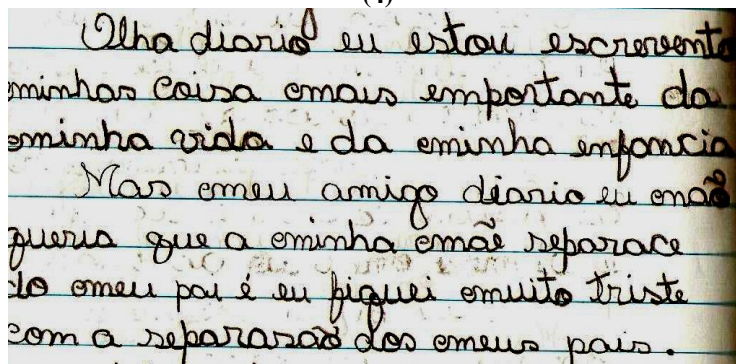 (4)
Olha diario eu estou escrevento
minhas coisa mais emportante da
minha vida e da minha enfancia
Mas meu amigo diario eu não
queria que a minha mãe separace
do meu pai é eu fiquei muito triste
com a separasão dos meus pais.